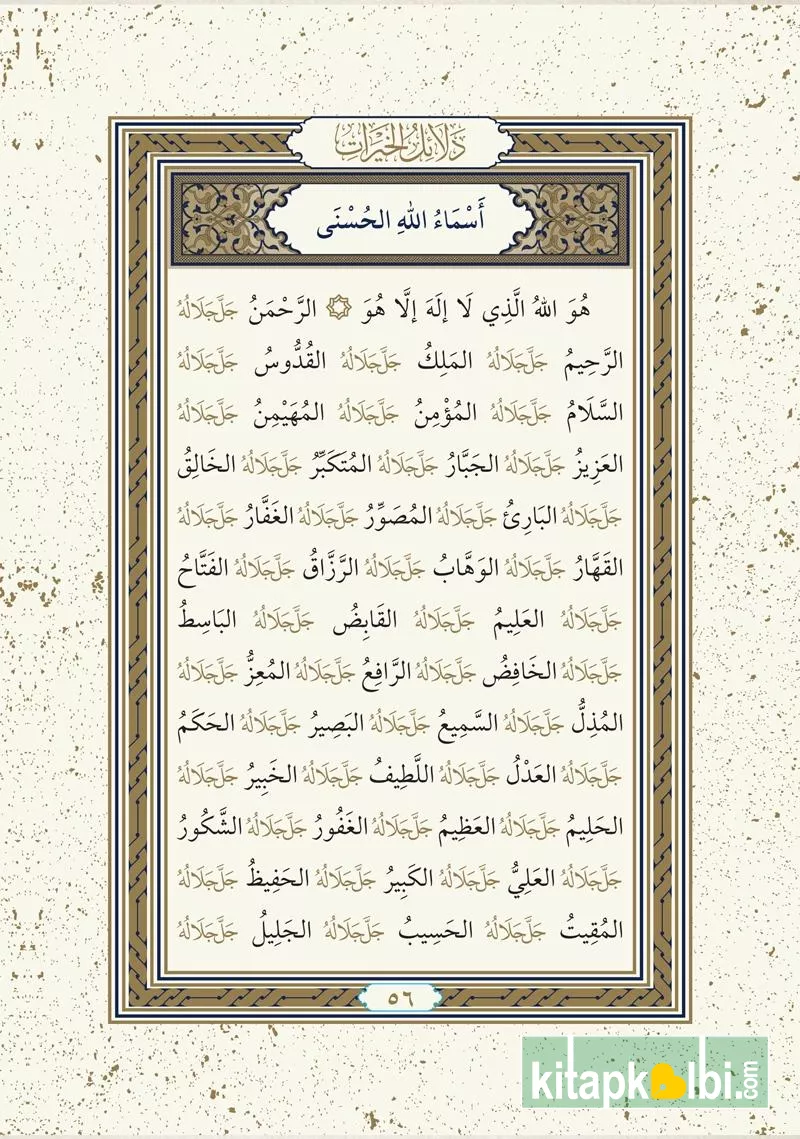 دَلَائِلُ الْخَيْرَاتِ
أَسْمَاءُ اللهِ الحُسْنَى
هُوَ اللهُ الَّذِي لَا إِلَهَ إِلَّا هُوَ ۞ الرَّحْمَنُ جَلَّ جَلَالُهُ
الرَّحِيمُ جَلَّ جَلَالُهُ المَلِكُ جَلَّ جَلَالُهُ القُدُّوسُ جَلَّ جَلَالُهُ
السَّلَامُ جَلَّ جَلَالُهُ المُؤْمِنُ جَلَّ جَلَالُهُ المُهَيْمِنُ جَلَّ جَلَالُهُ
العَزِيزُ جَلَّ جَلَالُهُ الجَبَّارُ جَلَّ جَلَالُهُ المُتَكَبِّرُ جَلَّ جَلَالُهُ الخَالِقُ
جَلَّ جَلَالُهُ البَارِئُ جَلَّ جَلَالُهُ المُصَوِّرُ جَلَّ جَلَالُهُ الغَفَّارُ جَلَّ جَلَالُهُ
القَهَّارُ جَلَّ جَلَالُهُ الوَهَّابُ جَلَّ جَلَالُهُ الرَّزَّاقُ جَلَّ جَلَالُهُ الفَتَّاحُ
جَلَّ جَلَالُهُ العَلِيمُ جَلَّ جَلَالُهُ القَابِضُ جَلَّ جَلَالُهُ البَاسِطُ
جَلَّ جَلَالُهُ الخَافِضُ جَلَّ جَلَالُهُ الرَّافِعُ جَلَّ جَلَالُهُ المُعِزُّ جَلَّ جَلَالُهُ
المُذِلُّ جَلَّ جَلَالُهُ السَّمِيعُ جَلَّ جَلَالُهُ البَصِيرُ جَلَّ جَلَالُهُ الحَكَمُ
جَلَّ جَلَالُهُ العَدْلُ جَلَّ جَلَالُهُ اللَّطِيفُ جَلَّ جَلَالُهُ الخَبِيرُ جَلَّ جَلَالُهُ
الحَلِيمُ جَلَّ جَلَالُهُ العَظِيمُ جَلَّ جَلَالُهُ الغَفُورُ جَلَّ جَلَالُهُ الشَّكُورُ
جَلَّ جَلَالُهُ العَلِيُّ جَلَّ جَلَالُهُ الكَبِيرُ جَلَّ جَلَالُهُ الحَفِيظُ جَلَّ جَلَالُهُ
المُقِيتُ جَلَّ جَلَالُهُ الحَسِيبُ جَلَّ جَلَالُهُ الجَلِيلُ جَلَّ جَلَالُهُ
٥٦
kitapkalbi.com